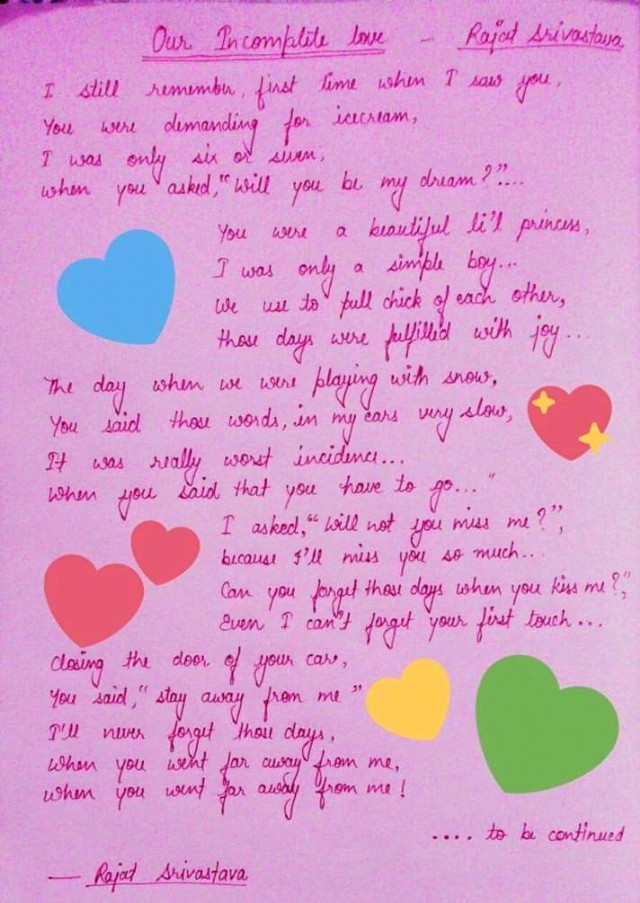 Our Incomplete love - Rajat Srivastava
I still remember, first time when I saw you,
You were demanding for icecream,
I was only six or seven,
when you asked, "will you be my dream?"....
You were a beautiful li'l princess,
I was only a simple boy...
We use to pull chick of each other,
those days were fulfilled with joy...
The day when we were playing with snow,
You said those words, in my ears very slow,
It was really worst incidence...
When you said that you have to go..."
I asked, "will not you miss me?",
because I'll miss you so much...
Can you forget those days when you kiss me?",
Even I can't forget your first touch...
Closing the door of your care,
You said, "stay away from me"
I'll never forget those days,
when you went far away from me,
when you went far away from me!
.... to be continued
— Rajat Srivastava